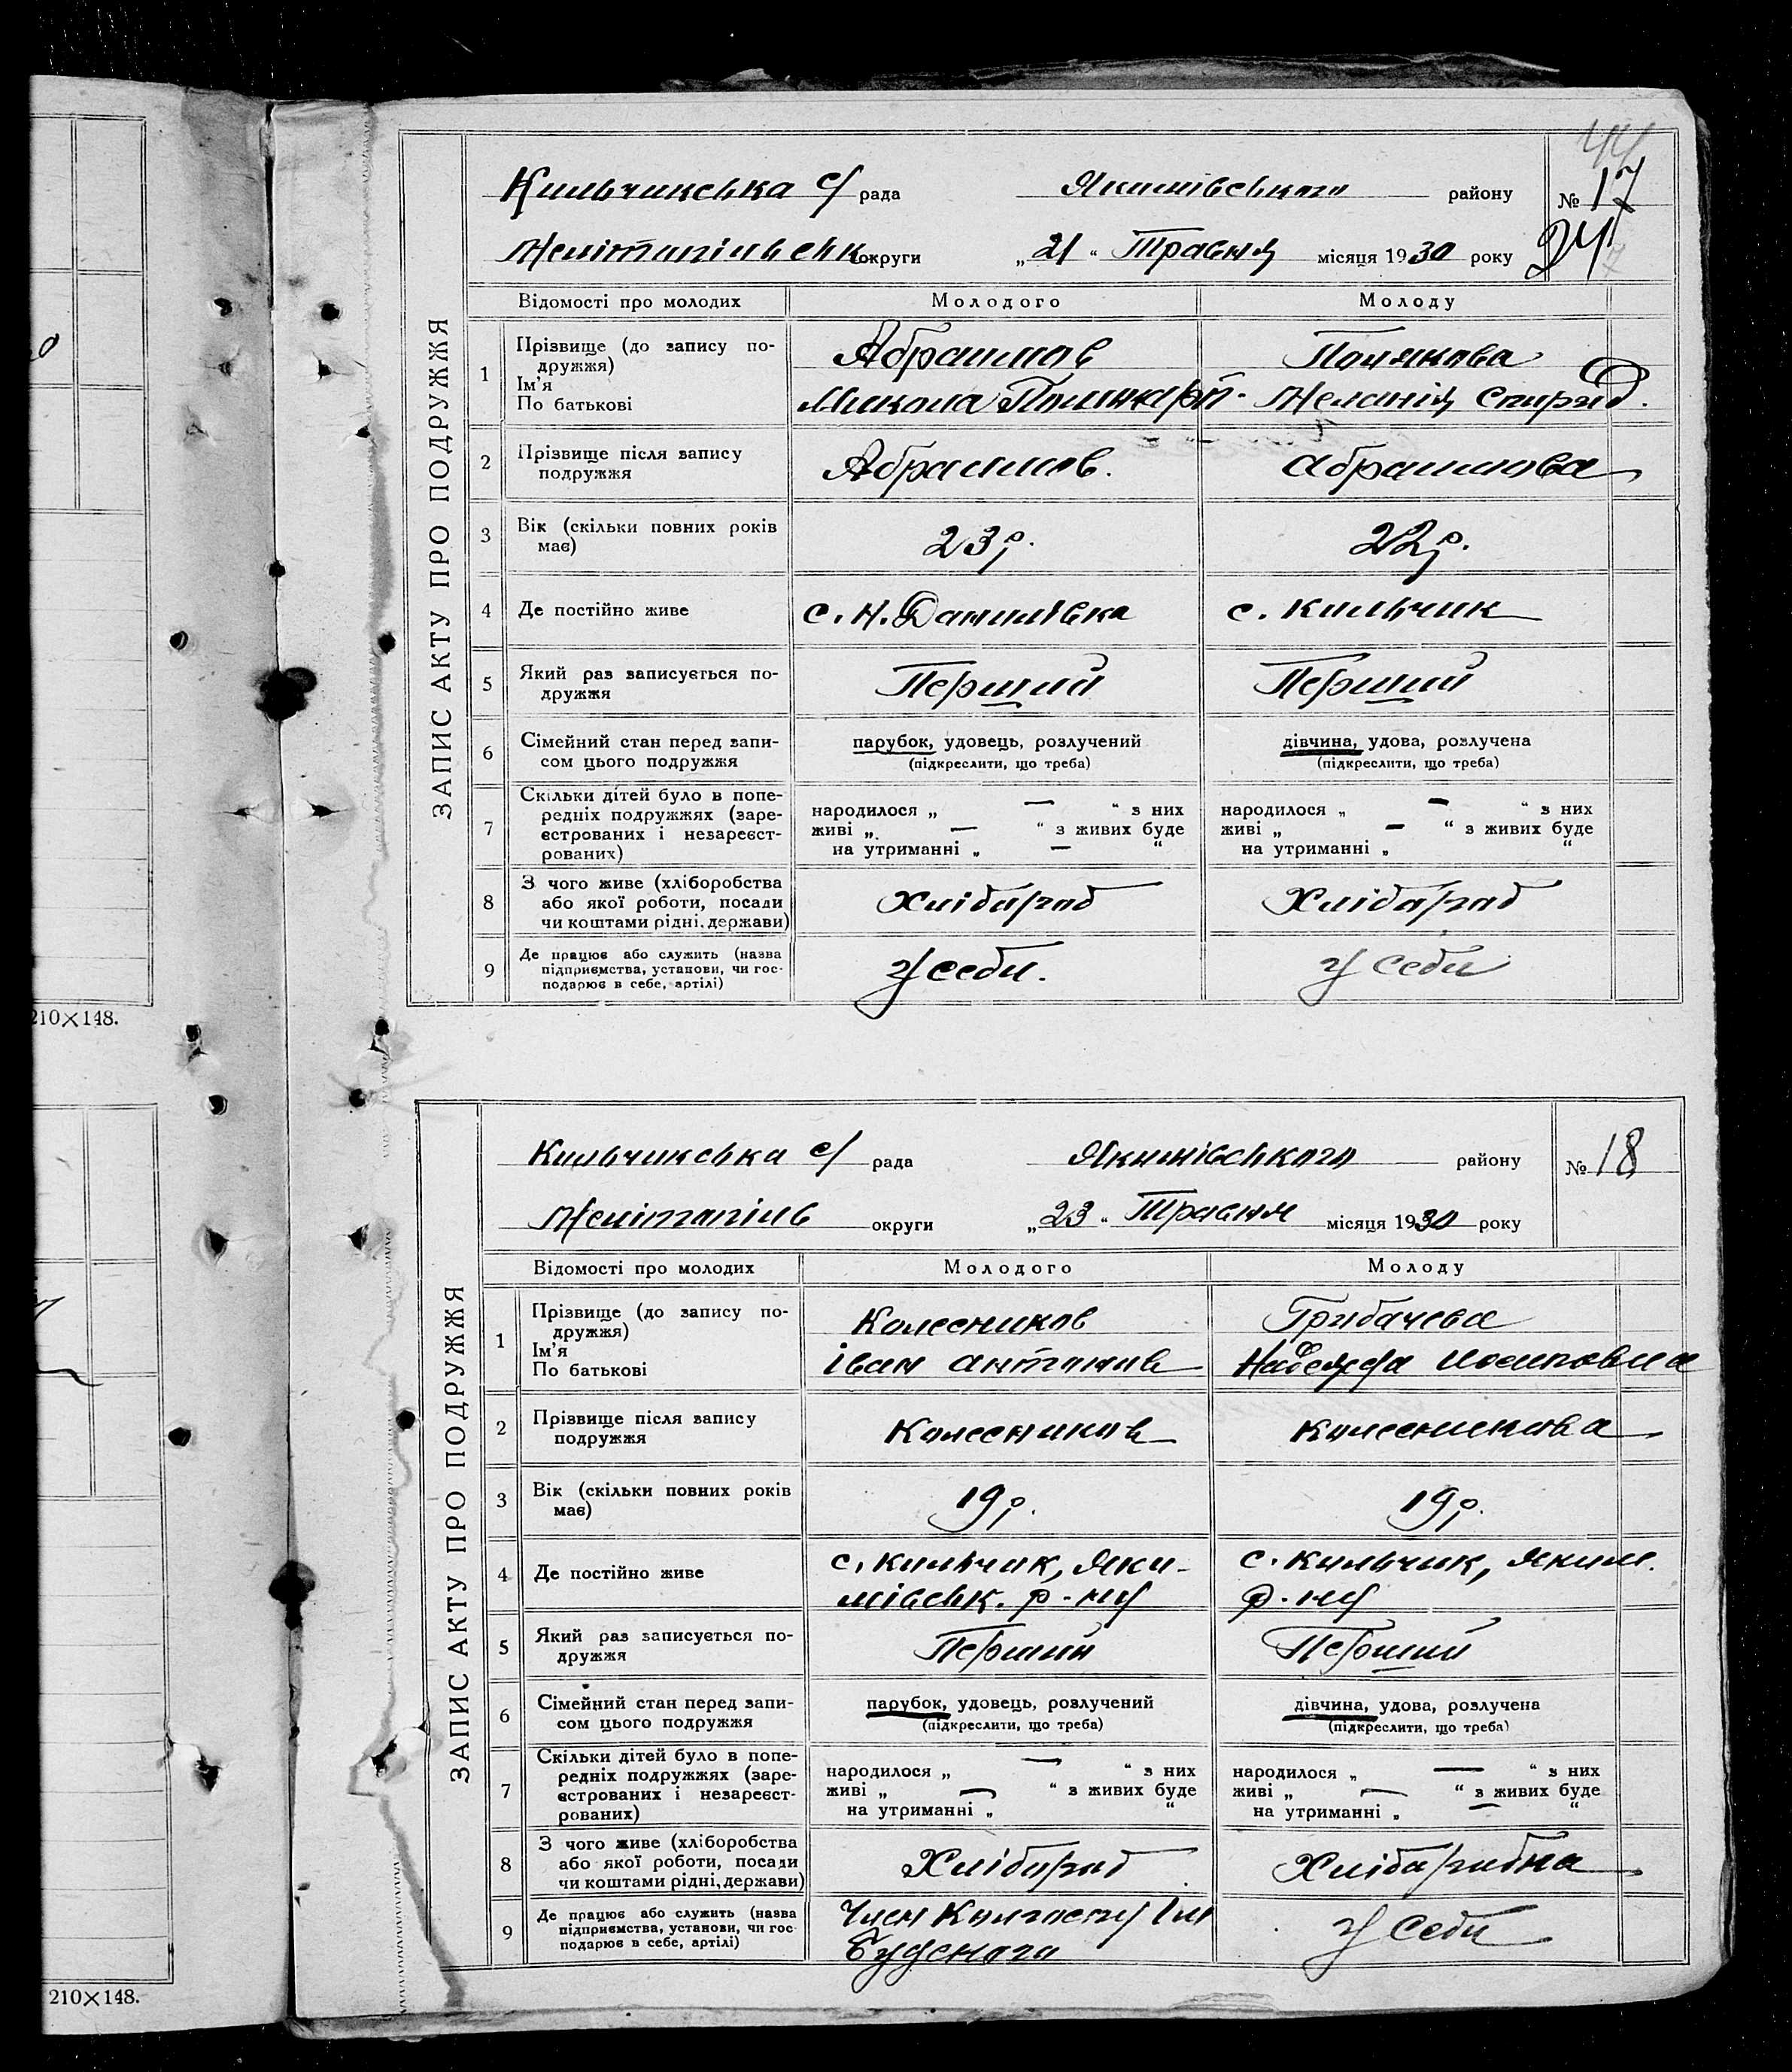 44
Кильчикська с/ рада Якимівського району № 17
Мелітопільськ округи „21“ Травня місяця 1930 року 24
ЗАПИС АКТУ ПРО ПОДРУЖЖЯ
Відомості про молодих Молодого Молоду
1 Прізвище (до запису по-
дружжя)
Ім'я
По батькові
Абрашмов Полякова
Микола Полікарп. Меланія Спирид.
2 Прізвище після запису
подружжя
Абрашмов. Абрашмова
3 Вік (скільки повних років
має)
23 р. 22 р.
4 Де постійно живе с. Н. Данилівка с. Кильчик
5 Який раз записується по-
дружжя
Перший Перший
6 Сімейний стан перед запи-
сом цього подружжя
парубок, удовець, розлучений дівчина, удова, розлучена
(підкреслити, що треба) (підкреслити, що треба)
7 Скільки дітей було в попе-
редніх подружжях (заре-
єстрованих і незареєст-
рованих)
народилося „ — “ з них народилося „ — “ з них
живі „ — “ з живих буде живі „ — “ з живих буде
на утриманні „ — “ на утриманні „ “
8 З чого живе (хліборобства
або якої роботи, посади
чи коштами рідні, держави)
Хлібороб Хлібороб
9 Де працює або служить (назва
підприємства, установи, чи гос-
подарює в себе, артілі)
У себи. У себи
210×148.
Кильчикська с/ рада Якимівського району № 18
Мелітопіль округи „23“ Травня місяця 1930 року
ЗАПИС АКТУ ПРО ПОДРУЖЖЯ
Відомості про молодих Молодого Молоду
1 Прізвище (до запису по-
дружжя)
Ім'я
По батькові
Колесников Грибачева
Іван Антонов Надежда Иосиповна
2 Прізвище після запису
подружжя
Колесников Колесникова
3 Вік (скільки повних років
має)
19 р. 19 р.
4 Де постійно живе
с. Кильчик, Яки- с. Кильчик, Яким.
мівськ. р-ну р-ну
5 Який раз записується по-
дружжя
Перший Перший
6 Сімейний стан перед запи-
сом цього подружжя
парубок, удовець, розлучений дівчина, удова, розлучена
(підкреслити, що треба) (підкреслити, що треба)
7 Скільки дітей було в попе-
редніх подружжях (заре-
єстрованих і незареєст-
рованих)
народилося „ — “ з них народилося „ — “ з них
живі „ — “ з живих буде живі „ — “ з живих буде
на утриманні „ “ на утриманні „ — “
8 З чого живе (хліборобства
або якої роботи, посади
чи коштами рідні, держави)
Хлібороб Хліборобна
9 Де працює або служить (назва
підприємства, установи, чи гос-
подарює в себе, артілі)
Член Колгоспу Ім У себи
Буденого
210×148.